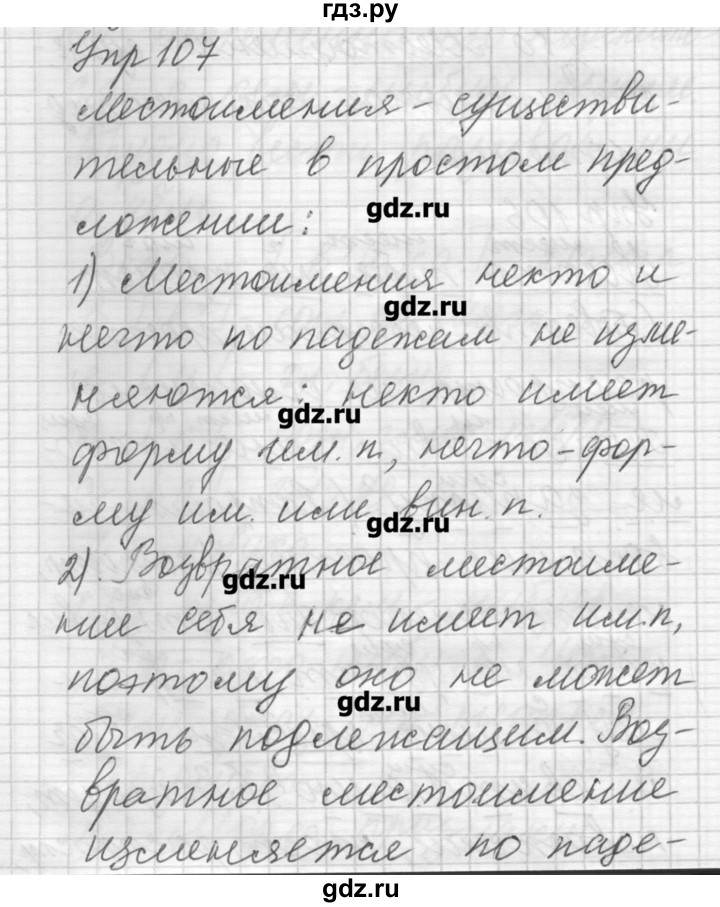 гдз.ру
Упр 107
Местоимения - существи-
тельные в простом пред-
gdz.ru
ложении:
1) Местоимения некто и
gdz.ru
нечто по падежам не изме-
няются: некто имеет
gdz.ru
форму им. п., нечто - фор-
му им. или вин. п.
gdz.ru
2). Возвратное местоиме-
gdz.ru
ние себя не имеет им. п,
поэтому оно не может
gdz.ru
быть подлежащим. Воз-
вратное местоимение
изменяется по паде-
gdz.ru